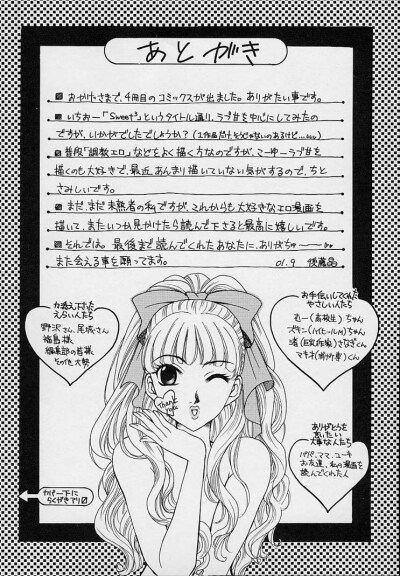 あとがき
おかげさまで、4冊目のコミックスが出ました。ありがたい事です。
いちおー"Sweet"というタイトル通り、ラブ甘を中心にしてみたの
ですが、いかがでしたでしょうか?(1作品だけ、そうじゃないのあるけど…)
普段「調教エロ」などをよく描く方なのですが、こーゆーラブ甘を
描くのも大好きで、最近、あんまり描いていない気がするので、ちと
さみしいです。
まだ、まだ未熟者の私ですが、これからも大好きなエロ漫画を
描いて、またいつか見かけたら読んで下さると最高に嬉しいです。
それでは。最後まで読んでくれたあなたに、ありがちゅー
また会える事を願ってます。
01.9 後藤晶
力添え下さった
えらい人たち
野沢さん、尾城さん
福島様
編集部の皆様
その他大勢
お手伝いしてくれた
やさしい人たち
むー(高校生)ちゃん
ちゃん
くん
マキオ くん
Thank you
ありがとうを
言いたい
大事な人たち
パパ、ママ、ユーキ
お友達、私の漫画を
読んでくれた人
カバー下に
らくがきアリ